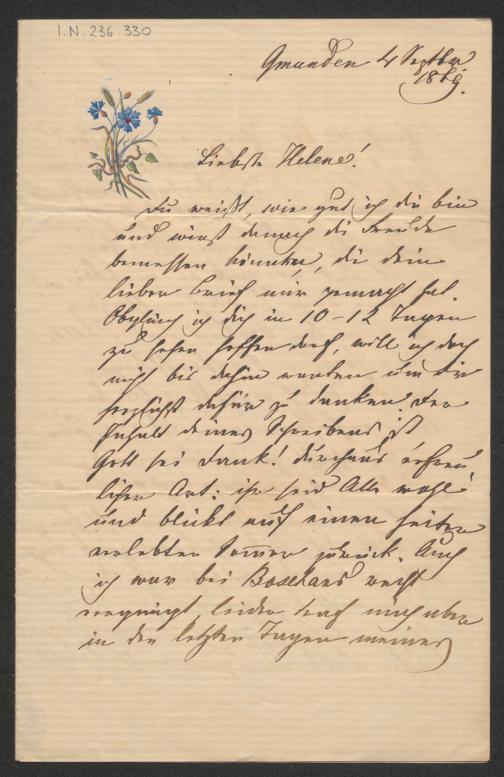 I.N. 236.330
Gmunden 4 Septbr
1869.
Liebste Helene!
Du weißt, wie gut ich dir bin
und wirst danach die Freude
bemessen können, die dein
lieber Brief mir gemacht hat.
Obgleich ich dich in 10-12 Tagen
zu sehen hoffen darf, will ich doch
nicht bis dahin warten um dir
herzlichst dafür zu danken. Der
Inhalt deines Schreibens ist
Gott sei Dank! durchaus erfreu
licher Art: ihr seid Alle wohl
und blickt auf einen heiter
verlebten Sommer zurück. Auch
ich war bei Boschans recht
vergnügt, leider traf mich aber
in den letzten Tagen meines